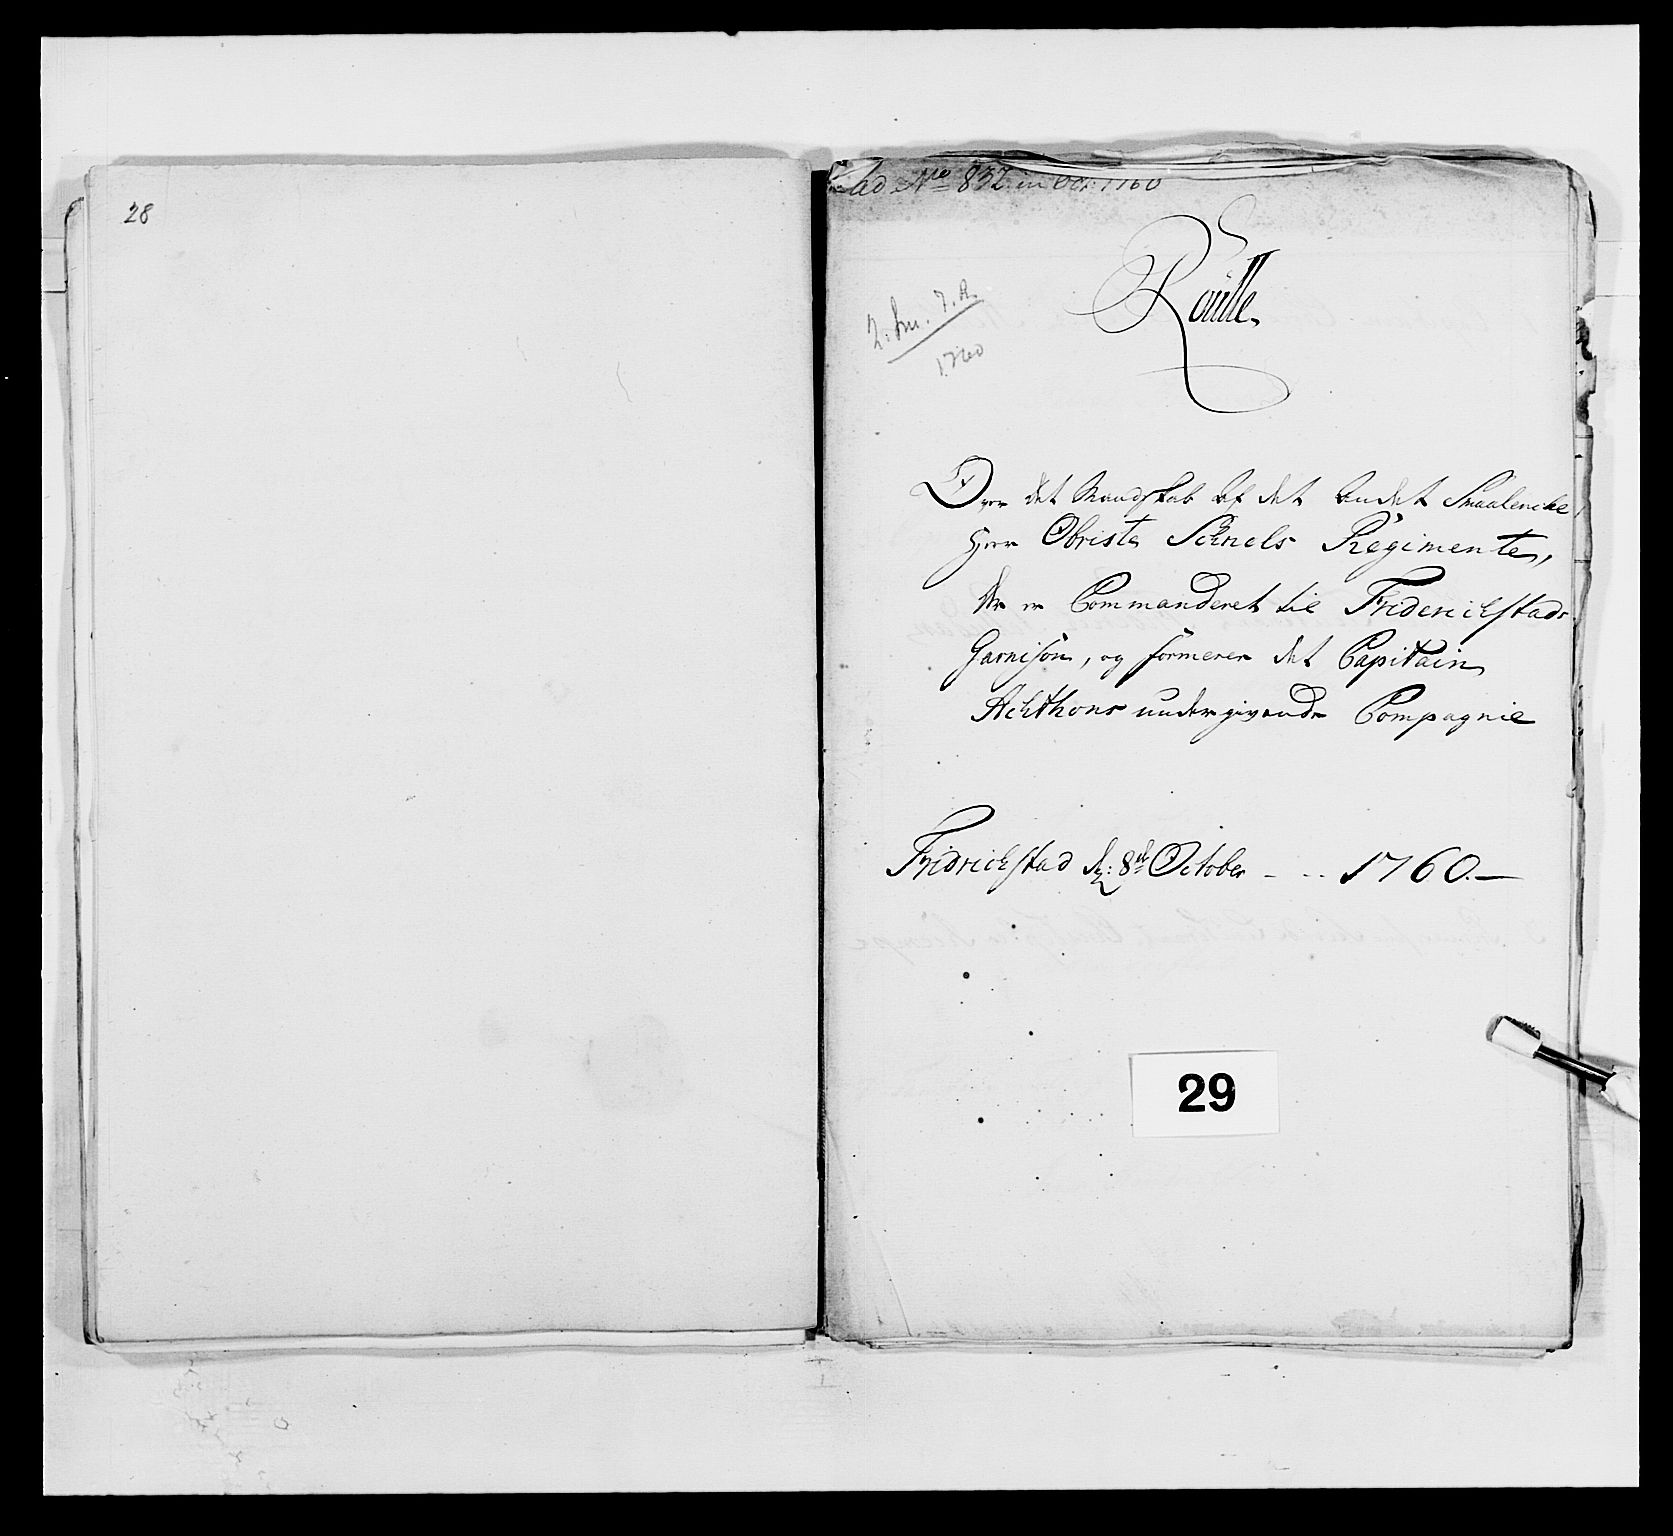 28
ad No 832 in Oct 1760
Roulle
2. Sm. J. R.
1760
Over det Mandskab af det Andet Smaalenske
Herr Obriste Schnels Regimente,
der er Commanderet til Friderichstads
Garnison, og formerer det Capitain
Achthons undergivende Compagnie
Fridrichstad d: 8de October - - - 1760. —
29